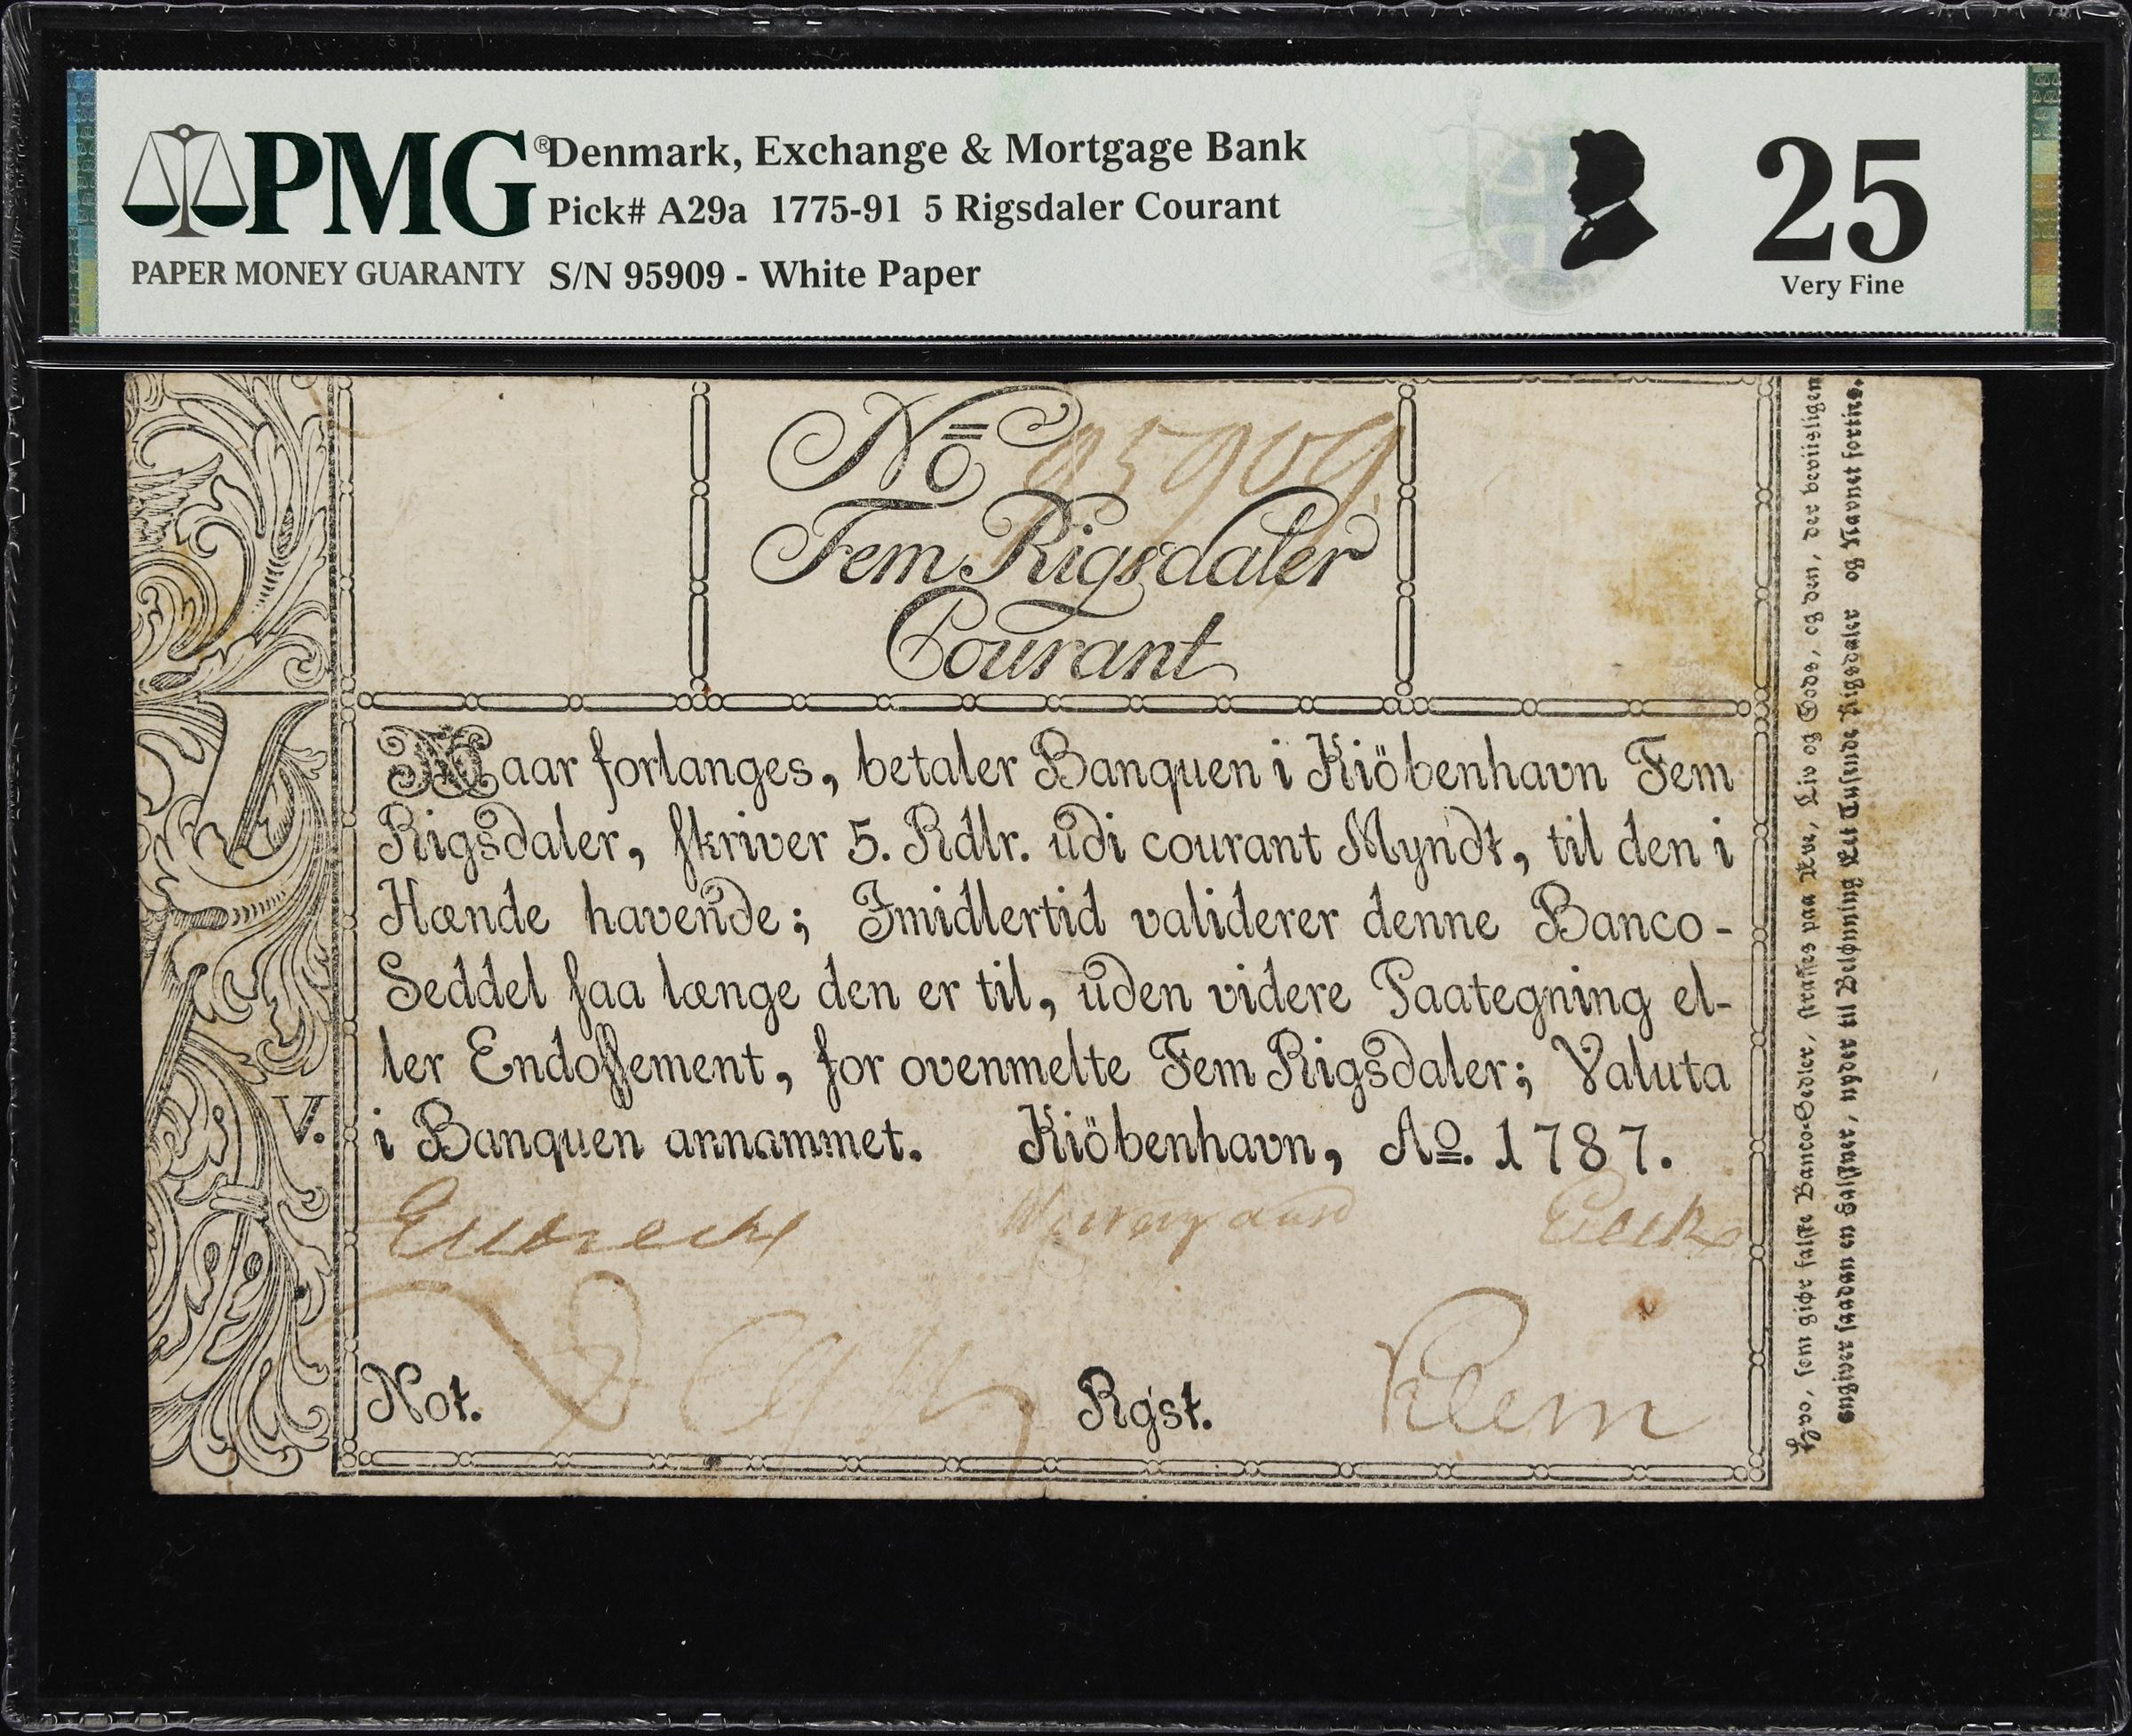 PMG®
PAPER MONEY GUARANTY
Denmark, Exchange & Mortgage Bank
Pick# A29a 1775-91 5 Rigsdaler Courant
S/N 95909 - White Paper
25
Very Fine
No 95909.
Fem Rigsdaler
Courant
Naar forlanges, betaler Banquen i Kiöbenhavn Fem
Rigsdaler, skriver 5. Rdlr. udi courant Myndt, til den i
Hænde havende; Imidlertid validerer denne Banco-
Seddel saa længe den er til, uden videre Paategning el-
ler Endossement, for ovenmelte Fem Rigsdaler; Valuta
i Banquen annammet. Kiöbenhavn, Ao. 1787.
V.
Eck
Not.
Rgst. Klem
Hvo, som giør falske Banco-Sedler, straffes paa Ære, Liv og Gods, og den, der beviisligen
angiver saadan en Gielgier, nyder til Belønning Eet Tusinde Rigsdaler og Navnet fortiet.